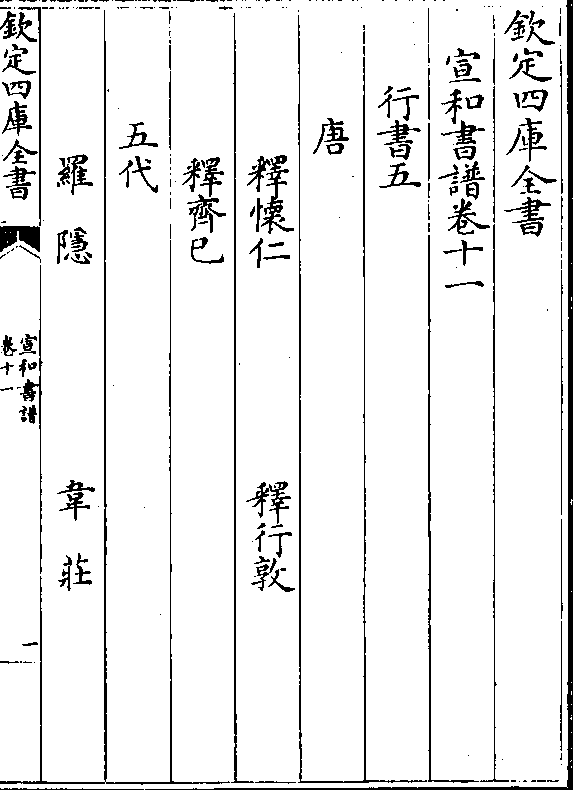 欽定四庫全書
宣和書譜卷十一
行書五
唐
釋懷仁 釋行敦
釋齊已
五代
羅隱 韋莊
欽定四庫全書
宣和書譜
卷十一
一